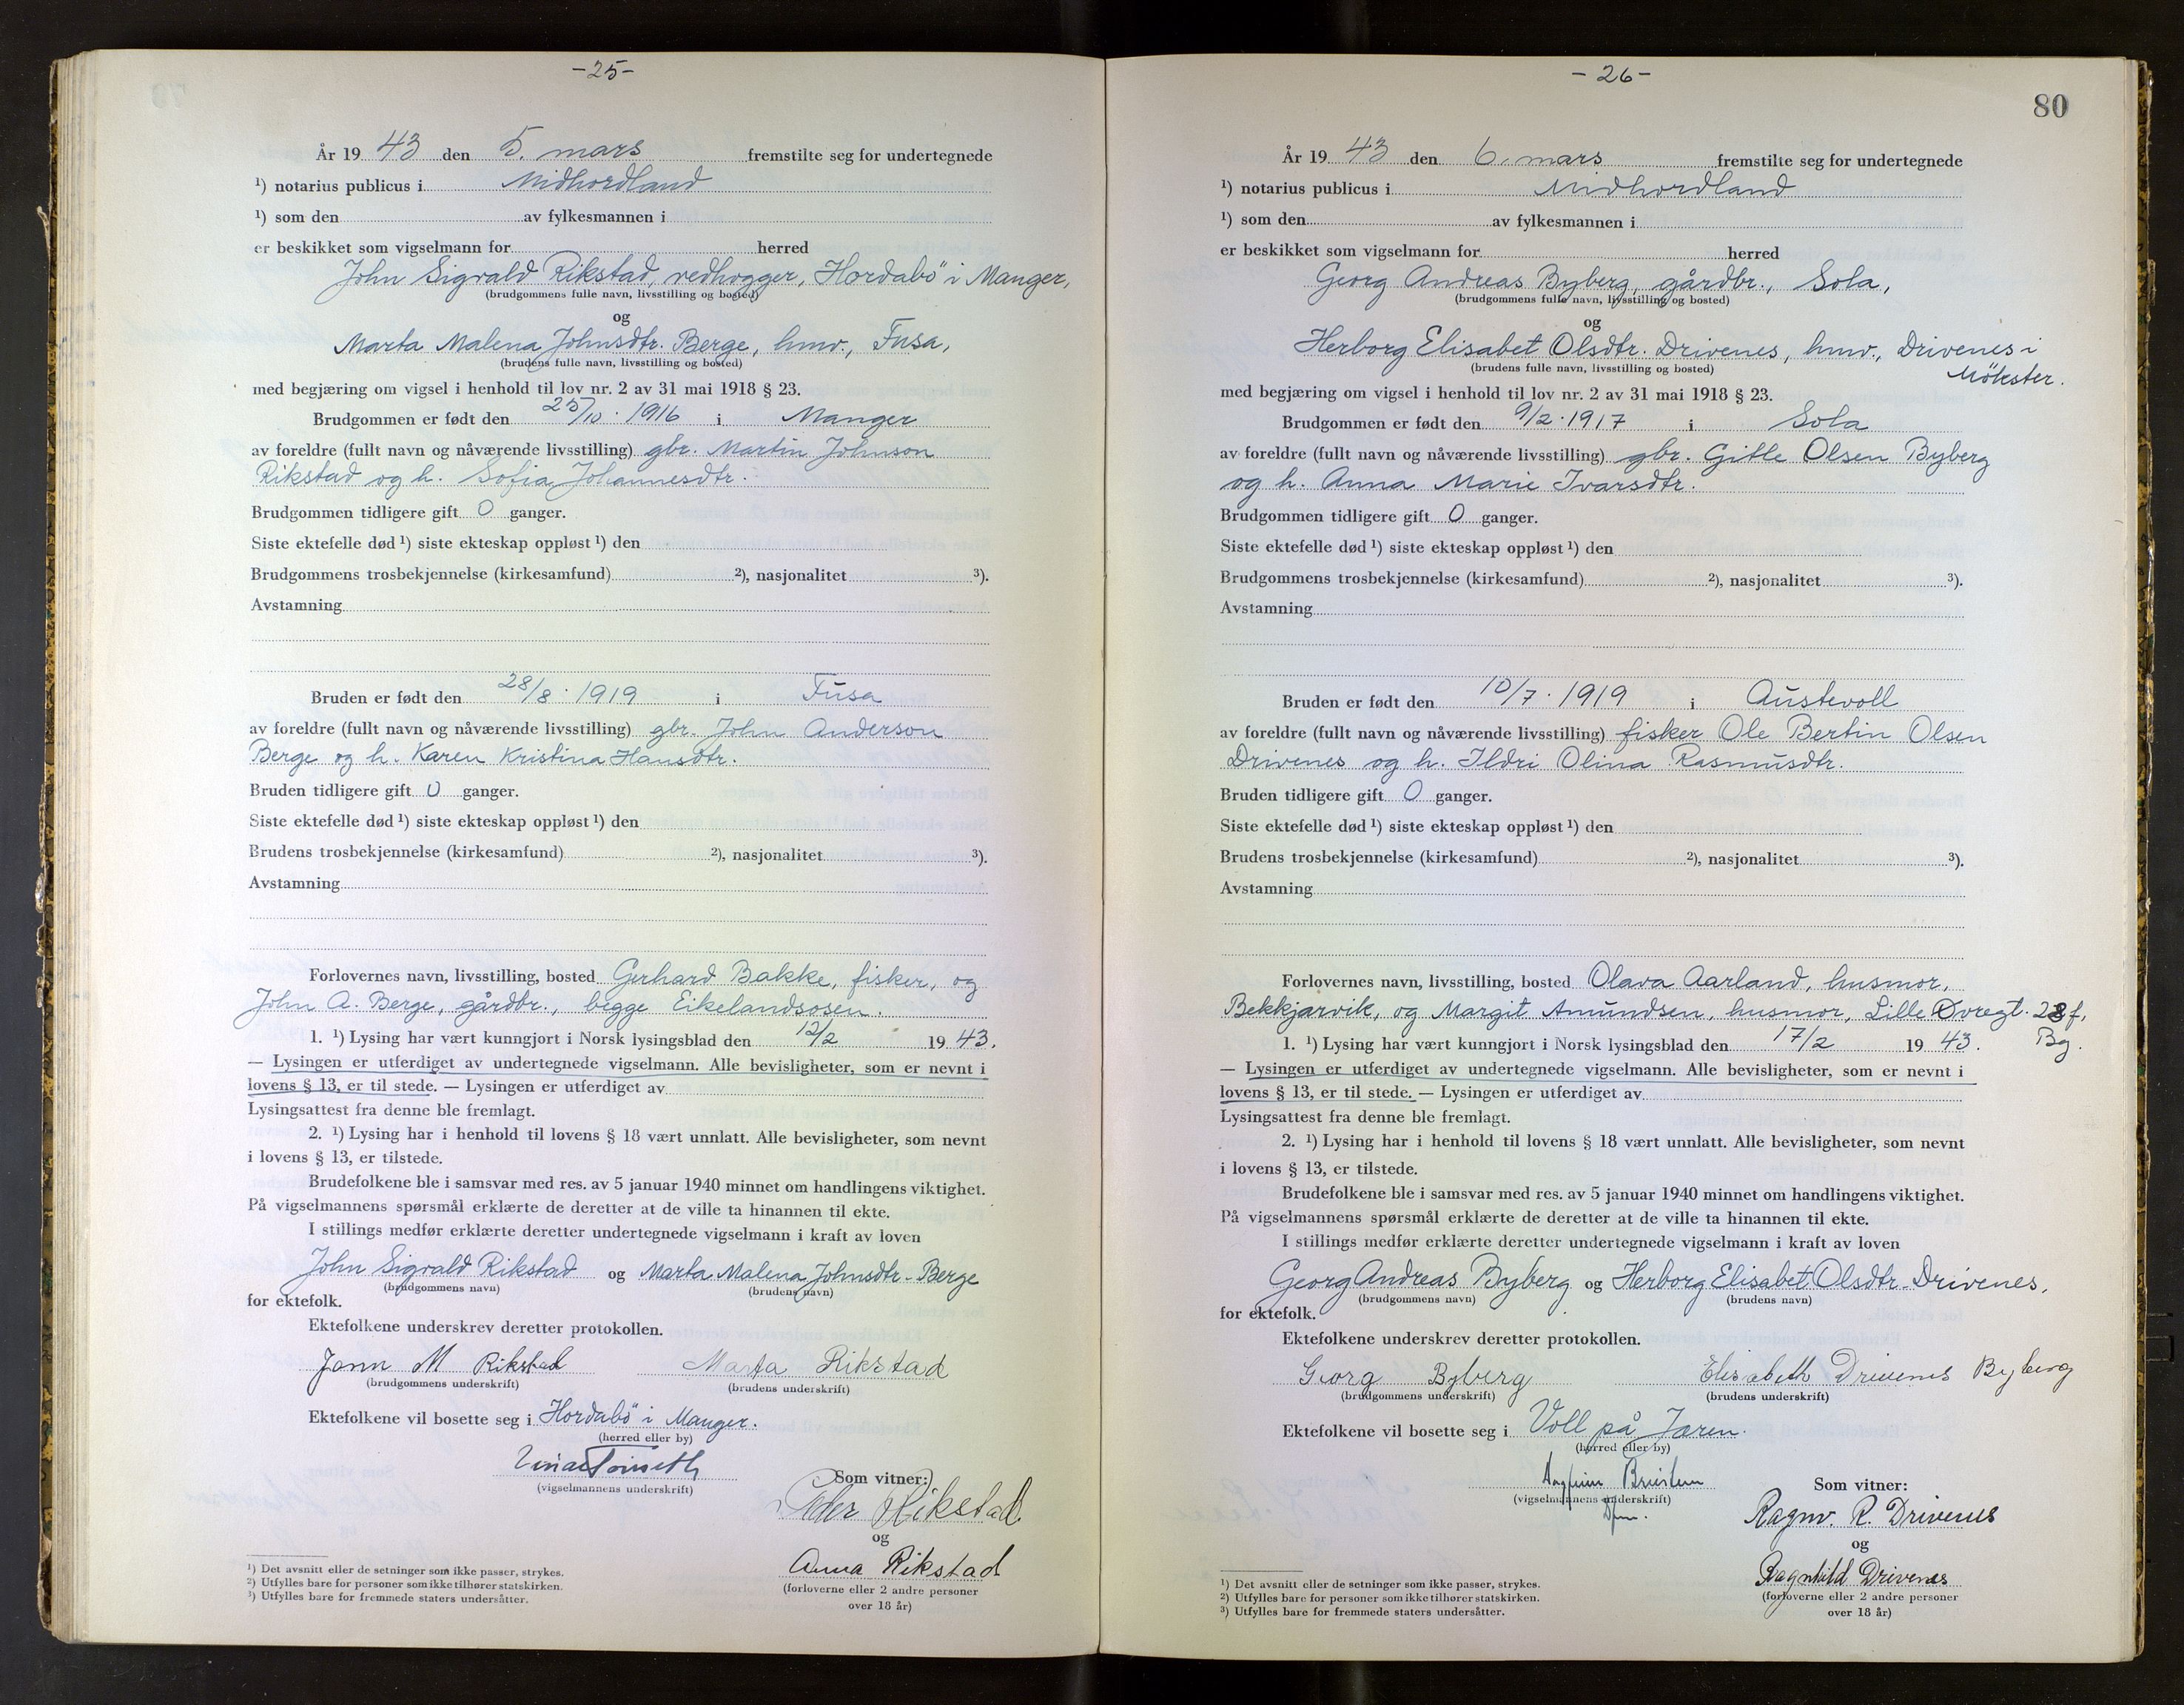 -25-
År 19 43 den 5. mars fremstilte seg for undertegnede
¹) notarius publicus i Midhordland
¹) som den av fylkesmannen i
er beskikket som vigselmann for herred
John Sigvald Rikstad, vedhogger, Hordabö i Manger,
(brudgommens fulle navn, livsstilling og bosted)
og
Marta Malena Johnsdtr. Berge, hmv., Fusa,
(brudens fulle navn, livsstilling og bosted)
med begjæring om vigsel i henhold til lov nr. 2 av 31 mai 1918 § 23.
Brudgommen er født den 25/10. 1916 i Manger
av foreldre (fullt navn og nåværende livsstilling) gbr. Martin Johnson
Rikstad og h. Sofia Johannesdtr.
Brudgommen tidligere gift 0 ganger.
Siste ektefelle død ¹) siste ekteskap oppløst ¹) den
Brudgommens trosbekjennelse (kirkesamfund) ²), nasjonalitet ³).
Avstamning
Bruden er født den 28/8. 1919 i Fusa
av foreldre (fullt navn og nåværende livsstilling) gbr. John Anderson
Berge og h. Karen Kristina Hansdtr.
Bruden tidligere gift 0 ganger.
Siste ektefelle død ¹) siste ekteskap oppløst ¹) den
Brudens trosbekjennelse (kirkesamfund) ²), nasjonalitet ³).
Avstamning
Forlovernes navn, livsstilling, bosted Gerhard Bakke, fisker, og
John A. Berge, gårdbr., begge Eikelandsosen.
1. ¹) Lysing har vært kunngjort i Norsk lysingsblad den 12/2 19 43.
— Lysingen er utferdiget av undertegnede vigselmann. Alle bevisligheter, som er nevnt i
lovens § 13, er til stede. — Lysingen er utferdiget av
Lysingsattest fra denne ble fremlagt.
2. ¹) Lysing har i henhold til lovens § 18 vært unnlatt. Alle bevisligheter, som nevnt
i lovens § 13, er tilstede.
Brudefolkene ble i samsvar med res. av 5 januar 1940 minnet om handlingens viktighet.
På vigselmannens spørsmål erklærte de deretter at de ville ta hinannen til ekte.
I stillings medfør erklærte deretter undertegnede vigselmann i kraft av loven
John Sigvald Rikstad og Marta Malena Johnsdtr. Berge
(brudgommens navn) (brudens navn)
for ektefolk.
Ektefolkene underskrev deretter protokollen.
M Rikstad Marta Rikstad
(brudgommens underskrift) (brudens underskrift)
Ektefolkene vil bosette seg i Hordabö i Manger.
(herred eller by)
(vigselmannens underskrift)
Som vitner:
Peder Rikstad
og
Anna Rikstad
(forloverne eller 2 andre personer
over 18 år)
¹) Det avsnitt eller de setninger som ikke passer, strykes.
²) Utfylles bare for personer som ikke tilhører statskirken.
³) Utfylles bare for fremmede staters undersåtter.
-26-
80
År 19 43 den 6. mars fremstilte seg for undertegnede
¹) notarius publicus i Midhordland
¹) som den av fylkesmannen i
er beskikket som vigselmann for herred
Georg Andreas Byberg, gårdbr., Sola,
(brudgommens fulle navn, livsstilling og bosted)
og
Herborg Elisabet Olsdtr. Drivenes, hmv., Drivenes i
Mökster.
(brudens fulle navn, livsstilling og bosted)
med begjæring om vigsel i henhold til lov nr. 2 av 31 mai 1918 § 23.
Brudgommen er født den 9/2. 1917 i Sola
av foreldre (fullt navn og nåværende livsstilling) gbr. Gitle Olsen Byberg
og h. Anna Marie Ivarsdtr.
Brudgommen tidligere gift 0 ganger.
Siste ektefelle død ¹) siste ekteskap oppløst ¹) den
Brudgommens trosbekjennelse (kirkesamfund) ²), nasjonalitet ³).
Avstamning
Bruden er født den 10/7. 1919 i Austevoll
av foreldre (fullt navn og nåværende livsstilling) fisker Ole Bertin Olsen
Drivenes og h. Ildri Olina Rasmusdtr.
Bruden tidligere gift 0 ganger.
Siste ektefelle død ¹) siste ekteskap oppløst ¹) den
Brudens trosbekjennelse (kirkesamfund) ²), nasjonalitet ³).
Avstamning
Forlovernes navn, livsstilling, bosted Olava Aarland, husmor,
Bekkjarvik, og Margit Amundsen, husmor, Lille Øvregt. 28 f,
Bg.
1. ¹) Lysing har vært kunngjort i Norsk lysingsblad den 17/2 19 43.
— Lysingen er utferdiget av undertegnede vigselmann. Alle bevisligheter, som er nevnt i
lovens § 13, er til stede. — Lysingen er utferdiget av
Lysingsattest fra denne ble fremlagt.
2. ¹) Lysing har i henhold til lovens § 18 vært unnlatt. Alle bevisligheter, som nevnt
i lovens § 13, er tilstede.
Brudefolkene ble i samsvar med res. av 5 januar 1940 minnet om handlingens viktighet.
På vigselmannens spørsmål erklærte de deretter at de ville ta hinannen til ekte.
I stillings medfør erklærte deretter undertegnede vigselmann i kraft av loven
Georg Andreas Byberg og Herborg Elisabet Olsdtr. Drivenes,
(brudgommens navn) (brudens navn)
for ektefolk.
Ektefolkene underskrev deretter protokollen.
Georg Byberg Elisabeth Drivenes Byberg
(brudgommens underskrift) (brudens underskrift)
Ektefolkene vil bosette seg i Voll på Jæren.
(herred eller by)
(vigselmannens underskrift)
Som vitner:
Ragnv. R. Drivenes
og
Ragnhild Drivenes
(forloverne eller 2 andre personer
over 18 år)
¹) Det avsnitt eller de setninger som ikke passer, strykes.
²) Utfylles bare for personer som ikke tilhører statskirken.
³) Utfylles bare for fremmede staters undersåtter.